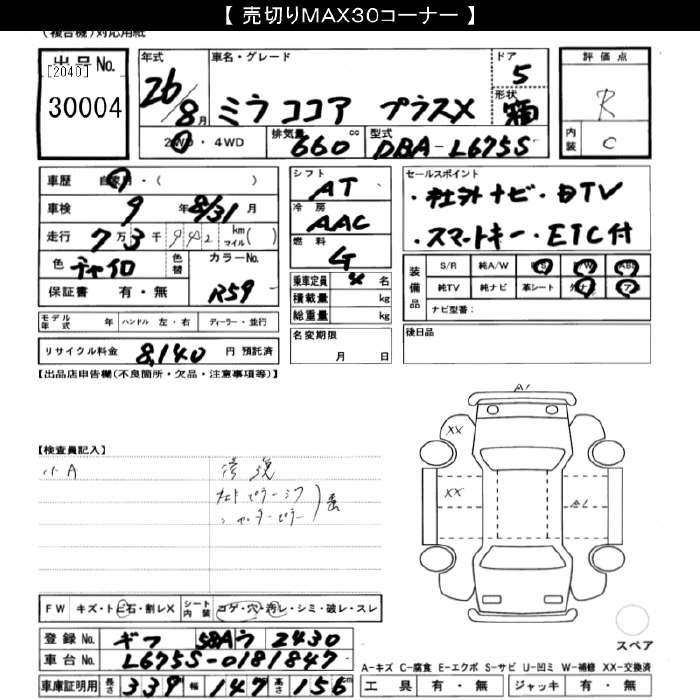 【 売切りMAX30コーナー 】
(複合機)対応用紙
出品No.
[2040]
30004
年式
26/8月
車名・グレード
ミラココア プラスX
ドア
5
形状
箱
評価点
R
内装
C
2WD・4WD
排気量
660cc
型式
DBA-L675S
車歴 自家用・( )
車検 9年8/31月
走行 7万3千942 km マイル( )
色 チャイロ 色替 カラーNo.
保証書 有・無 R59
シフト
AT
冷房
AAC
燃料
G
乗車定員 4名
積載量 kg
総重量 kg
セールスポイント
・社外ナビ・DTV
・スマートキー・ETC付
装備品
S/R 純A/W P/S P/W ABS
純TV 純ナビ 革シート 外ナビ エア
ナビ型番:
モデル年式 年 ハンドル 左・右 ディーラー・並行
名変期限
月 日
後日品
リサイクル料金 8,140 円 預託済
【出品店申告欄(不良箇所・欠品・注意事項等)】
【検査員記入】
小A
修腹
右センターピラー
A1
XX
XX
A1
FW キズ・トビ石・割レX シート内装 コゲ・穴・汚レ・シミ・破レ・スレ
登録No. ギフ 58A ウ 2430
車台No. L675S-0181847
車庫証明用 長さ 339 幅 147 高さ 156 cm
スペア
A-キズ C-腐食 E-エクボ S-サビ U-凹ミ W-補修 XX-交換済
工具 有・無 ジャッキ 有・無